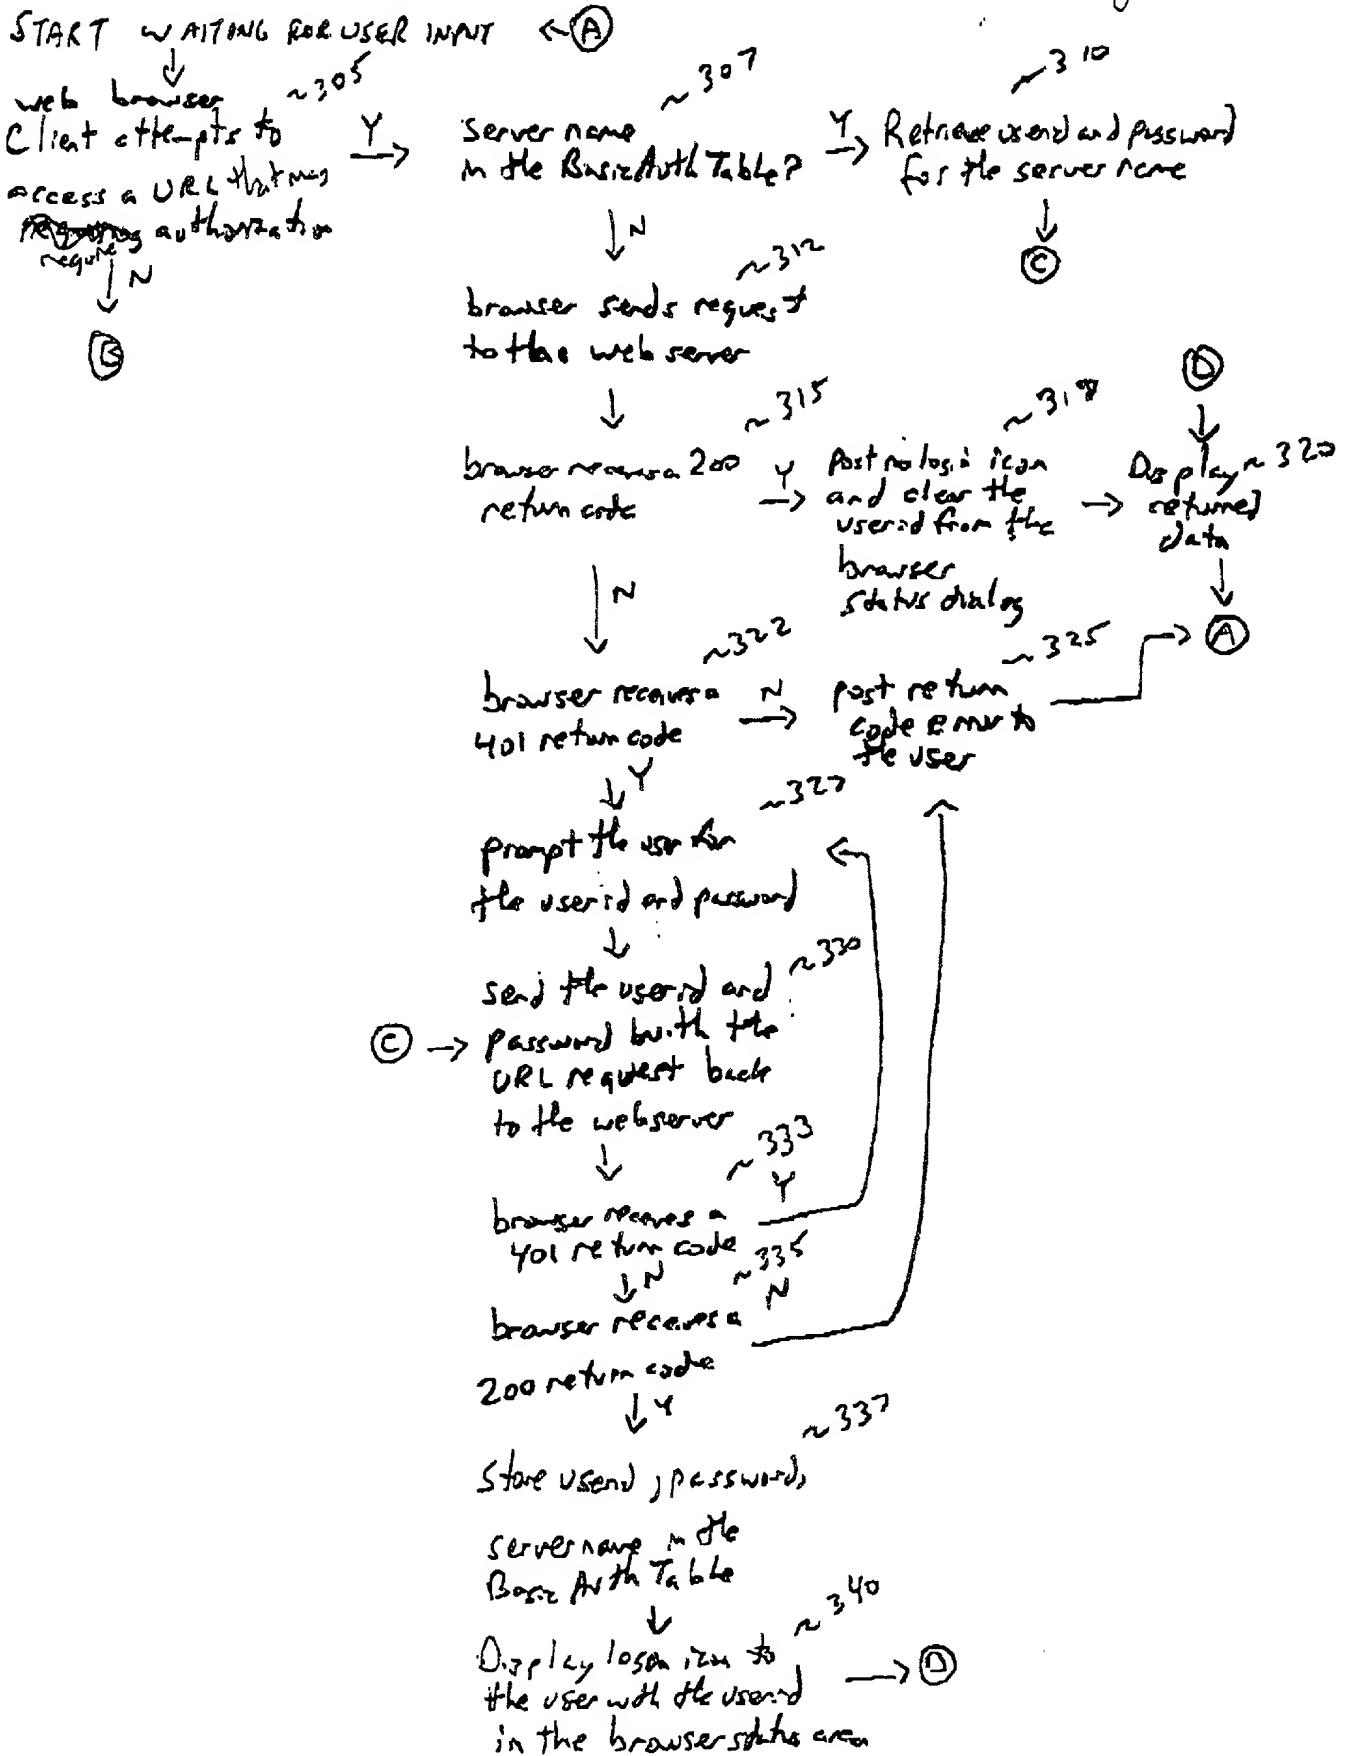 START WAITING FOR USER INPUT ← A
~305
web browser
Client attempts to
access a URL that may
require authorization
Y
N
B
~307
server name
in the Basic Auth Table?
Y
N
~310
Retrieve userid and password
for the server name
C
~312
browser sends request
to the web server
~315
browser receives a 200
return code
Y
N
~318
Post no logon icon
and clear the
userid from the
browser
status dialog
D
~320
Display
returned
data
A
~322
browser receives a
401 return code
N
Y
~325
post return
code error to
the user
~327
prompt the user for
the userid and password
~330
send the userid and
C → password with the
URL request back
to the webserver
~333
browser receives a
401 return code
Y
N
~335
browser receives a
200 return code
N
Y
~337
Store userid, password,
server name in the
Basic Auth Table
~340
Display logon icon to
the user with the userid
in the browser status area
D